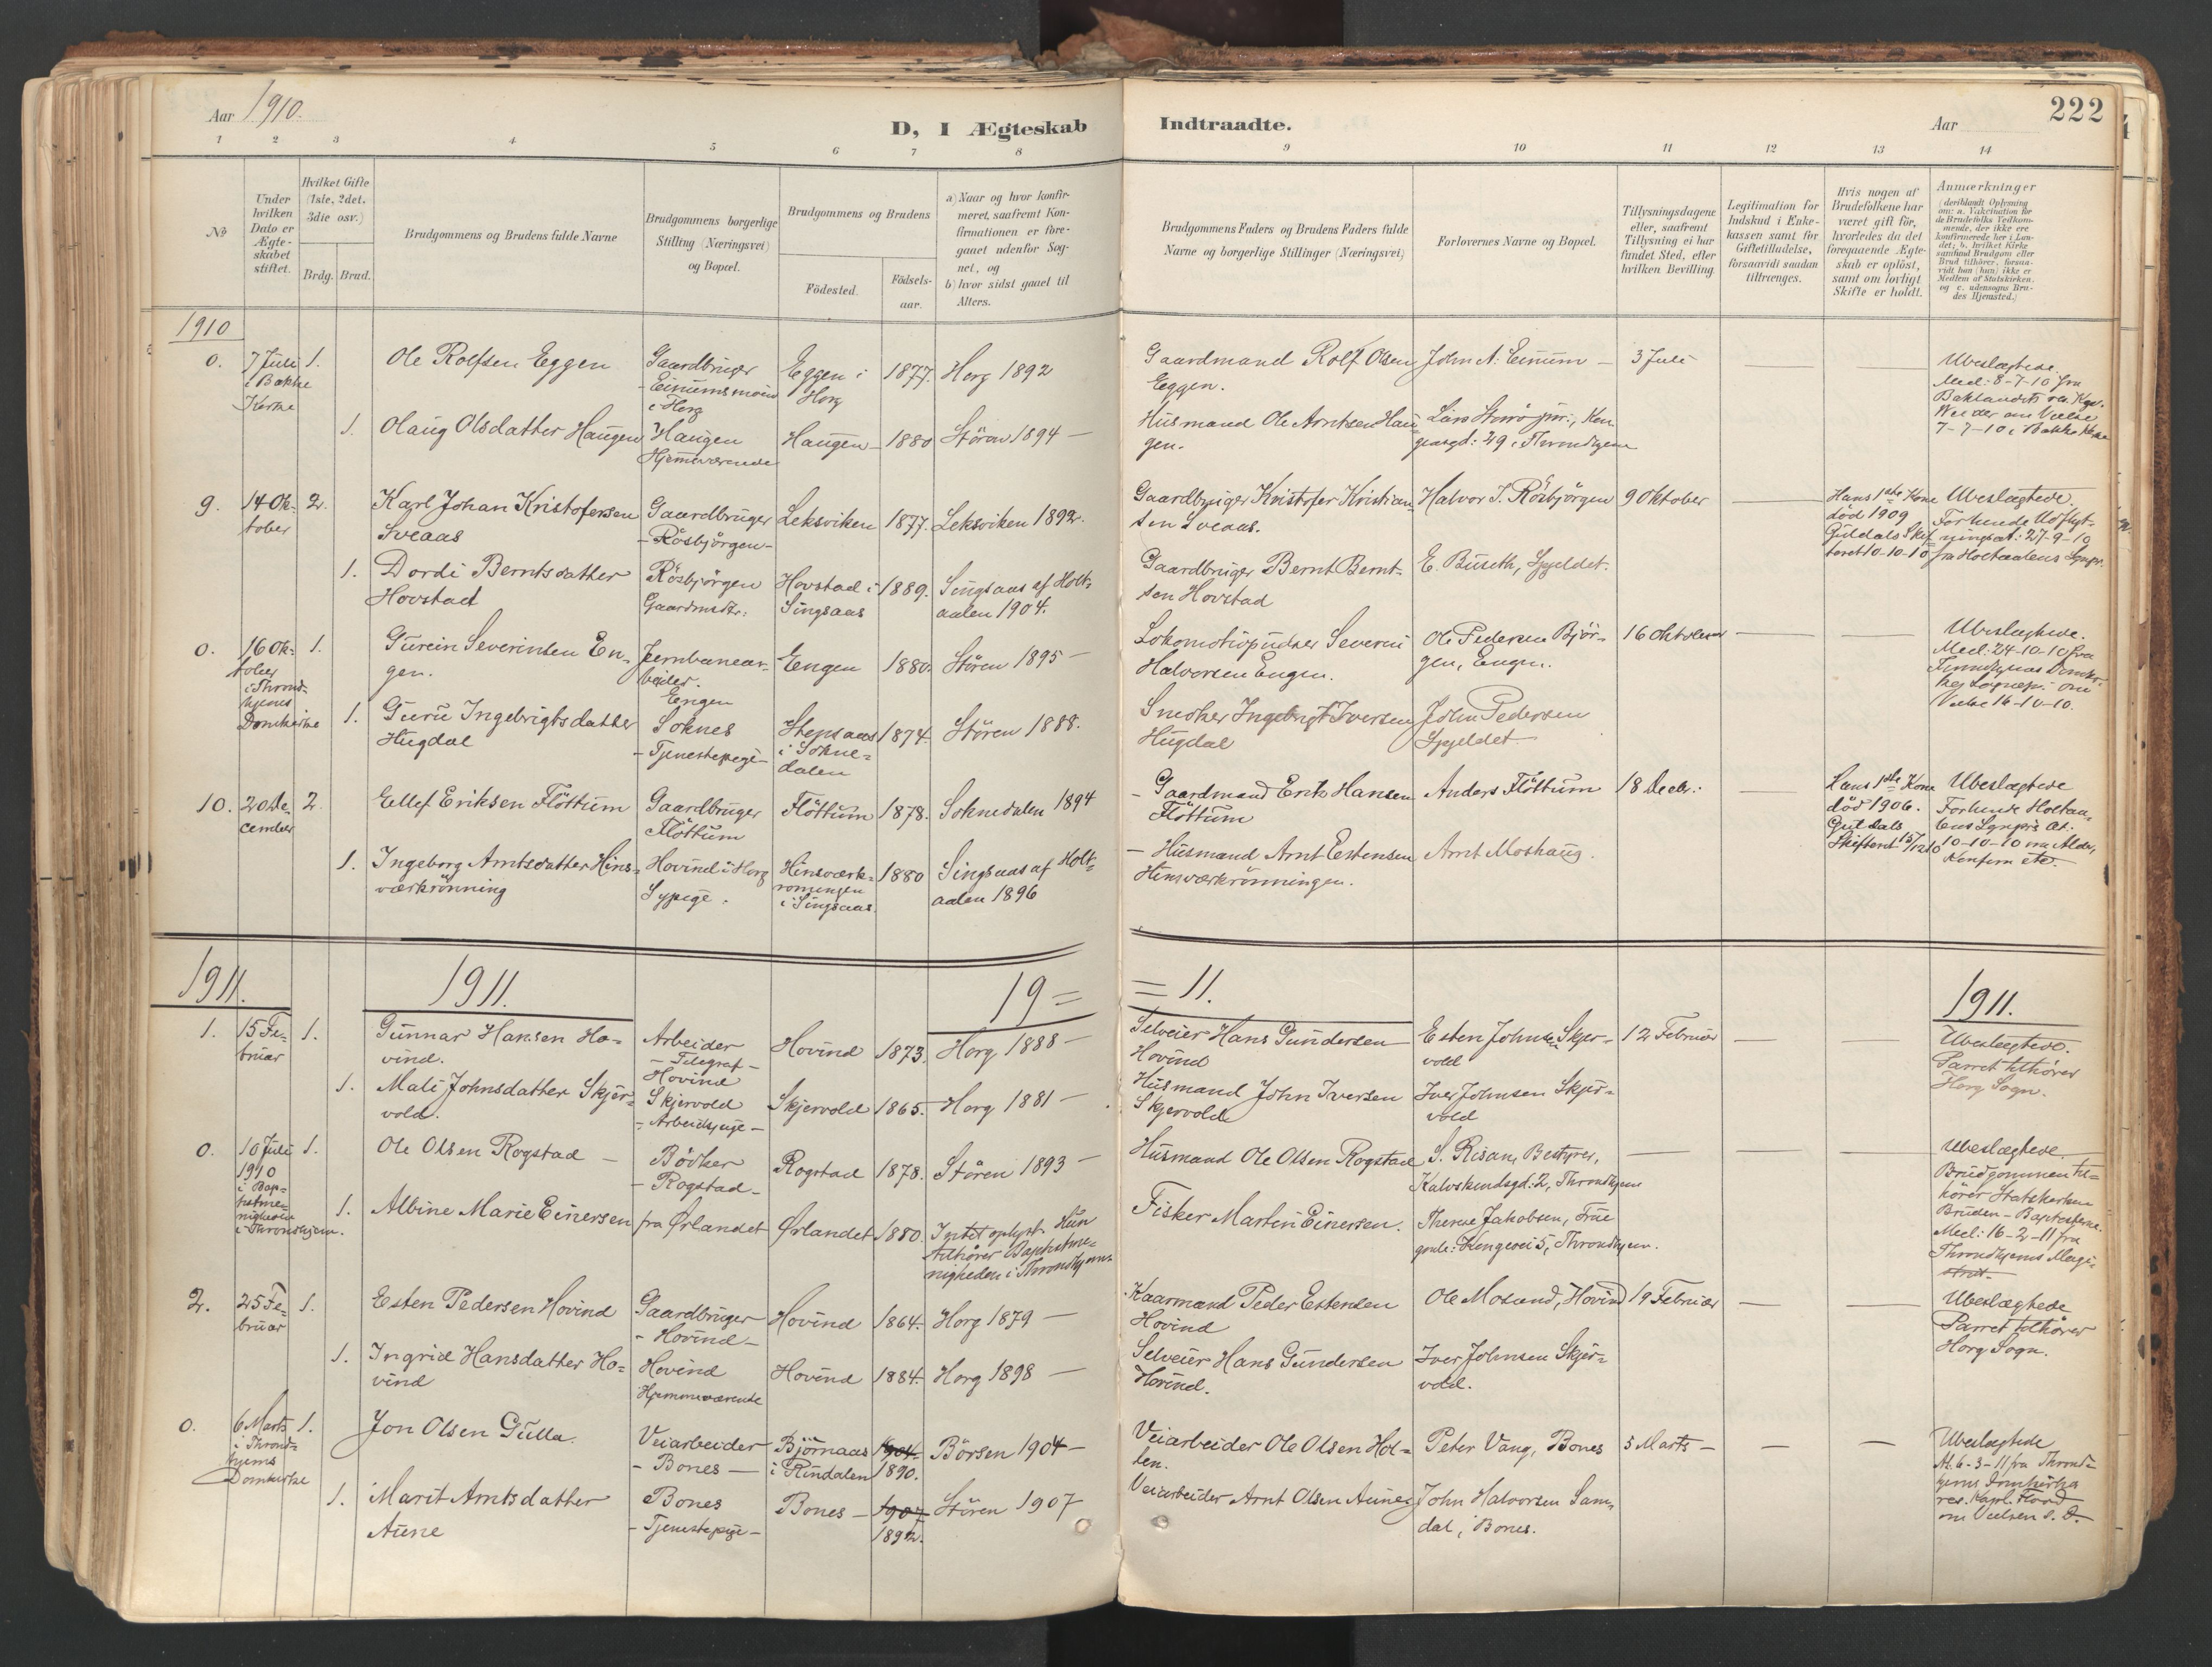 Aar 1910.
D, I Ægteskab
Indtraadte.
Aar
222
1 2 3 4 5 6 7 8 9 10 11 12 13 14
№
Under
hvilken
Dato er
Ægte-
skabet
stiftet.
Hvilket Gifte
(1ste, 2det,
3die osv.)
Brdg. Brud.
Brudgommens og Brudens fulde Navne
Brudgommens borgerlige
Stilling (Næringsvei)
og Bopæl.
Brudgommens og Brudens
Födested.
Födsels-
aar.
a) Naar og hvor konfir-
meret, saafremt Kon-
firmationen er fore-
gaaet udenfor Sog-
net, og
b) hvor sidst gaaet til
Alters.
Brudgommens Faders og Brudens Faders fulde
Navne og borgerlige Stillinger (Næringsvei)
Forlovernes Navne og Bopæl.
Tillysningsdagene
eller, saafremt
Tillysning ei har
fundet Sted, efter
hvilken Bevilling.
Legitimation for
Indskud i Enke-
kassen samt for
Giftetilladelse,
forsaavidt saadan
tiltrænges.
Hvis nogen af
Brudefolkene har
været gift för,
hvorledes da det
foregaaende Ægte-
skab er oplöst,
samt om lovligt
Skifte er holdt.
Anmærkninger
(deriblandt Oplysning
om: a. Vaccination for
de Brudefolks Vedkom-
mende, der ikke ere
konfirmerede her i Lan-
det; b. hvilket Kirke
samfund Brudgom eller
Brud tilhörer, forsaa-
vidt han (hun) ikke er
Medlem af Statskirken,
og c. udensogns Bru-
des Hjemsted.)
1910
0. 7 Juli 1.
i Bakke
Kirke
Ole Rolfsen Eggen
Gaardbruger
Einumsmoen
i Horg
Eggen i
Horg
1877. Horg 1892
Gaardmand Rolf Olsen
Eggen.
John A. Einum —
3 Juli
Ubeslægtede.
Med: 8-7-10 fra
7-7-10 i Bakke Kirke
1. Olaug Olsdatter Haugen
Haugen
Hjemmeværende
Haugen — 1880 Stören 1894 —
Husmand Ole Arntsen Hau-
gen.
Lars Störö jun., Kon-
gensgd: 29, Throndhjem
9. 14 Ok-
tober
2. Karl Johan Kristofersen
Sveaas
Gaardbruger
– Rösbjörgen –
Leksviken 1877. Leksviken 1892.
Gaardbruger Kristofer Kristian-
sen Sveaas.
Halvor J. Rösbjörgen
9 Oktober
Hans 1ste Kone
död 1909
Guldals Skif-
teret 10-10-10
Ubeslægtede.
Forlovede Udflyt-
ningsat: 27-9-10
fra Holtaalens Sognepr.
1. Dordi Berntsdatter
Hovstad
Rösbjörgen
Gaardmdtr.
Hovstad i
Singsaas
1889. Singsaas af Holt-
aalen 1904.
Gaardbruger Bernt Bernt-
sen Hovstad
E. Buseth, Spjeldet.
0. 16 Ok-
tober
i Thrond-
hjems
Domkirke
1. Gurein Severinsen En-
gen.
Jernbanear-
beider.
Engen
Engen 1880. Stören 1895 —
Lokomotivpudser Severin
Halvorsen Engen.
Ole Pedersen Björ-
gen, Engen.
16 Oktober
Ubeslægtede.
Med: 24-10-10 fra
Vielse 16-10-10.
1. Guru Ingebrigtsdatter
Hugdal
Soknes
– Tjenestepige –
Stensaas
i Sokne-
dalen
1874. Stören 1888.
Snedker Ingebrigt Iversen
Hugdal
John Pedersen
Spjeldet
10. 20 De-
cember
2. Ellef Eriksen Flöttum
Gaardbruger
Flöttum
Flöttum 1878. Soknedalen 1894
– Gaardmand Erik Hansen
Flöttum
Anders Flöttum
18 Decbr.
Hans 1ste Kone
död 1906.
Guldals
Skifteret 15/12 10
Ubeslægtede
Forlovede Holtaa-
lens Sognepr. at:
10-10-10 om Alder,
Konfirm. etc.
1. Ingeborg Arntsdatter Hins-
værkrönning
Hovind i Horg
Sypige.
Hinsværk-
rönningen
i Singsaas.
1880 Singsaas af Holt-
aalen 1896
– Husmand Arnt Estensen
Hinsværkrönningen.
Arnt Moshaug.
1911. 1911. 19 = = 11. 1911.
1. 15 Fe-
bruar
1. Gunnar Hansen Ho-
vind.
Arbeider
– Telegraf –
Hovind
Hovind 1873. Horg 1888 —
Selveier Hans Gundersen
Hovind
Esten Johnsen Skjer-
vold
12 Februar
Ubeslægtede.
Parret tilhörer
Horg Sogn.
1. Mali Johnsdatter Skjer-
vold.
Skjervold
– Arbeidspige –
Skjervold 1865. Horg 1881 —
Husmand John Iversen
Skjervold
Iver Johnsen Skjer-
vold
0. 10 Juli
1910
i Bap-
tistme-
nigheden
i Throndhjem.
1. Ole Olsen Rogstad —
Bödker
– Rogstad –
Rogstad 1878. Stören 1893 —
Husmand Ole Olsen Rogstad
S. Risan, Bestyrer,
Kalvskindsgd: 2, Throndhjem
Ubeslægtede.
Brudgommen til-
hörer Statskirken
Bruden – Baptisterne.
Med: 16-2-11 fra
Throndhjems Magi-
strat.
1. Albine Marie Einersen
fra Ørlandet Ørlandet 1880. Intet oplyst. Hun
tilhörer Baptistme-
nigheden i Throndhjem.
Fisker Martin Einersen.
Therese Jakobsen, Frue
Kongevei 5, Throndhjem.
2. 25 Fe-
bruar
1. Esten Pedersen Hovind
Gaardbruger
– Hovind –
Hovind 1864. Horg 1879 —
Kaarmand Peder Estensen
Hovind
Ole Mosand, Hovind
19 Februar
Ubeslægtede
Parret tilhörer
Horg Sogn.
1. Ingrid Hansdatter Ho-
vind
Hovind
Hjemmeværende
Hovind 1884. Horg 1898 —
Selveier Hans Gundersen
Hovind.
Iver Johnsen Skjer-
vold.
0. 6 Marts
i Thrond-
hjems
Domkirke
1. Jon Olsen Gulla.
Veiarbeider
– Bones —
Björnaas
i Rindalen
1904
1890.
Börsen 1904 —
Veiarbeider Ole Olsen Hol-
ten.
Peter Vang, Bones
5 Marts —
Ubeslægtede
At. 6-3-11 fra Thrond-
hjems Domkirke
res. Kapl. Flood
om Vielsen s. D.
1. Marit Arntsdatter
Aune
Bones
– Tjenestepige –
Bones — 1907
1892.
Stören 1907
Veiarbeider Arnt Olsen Aune
John Halvorsen Sam-
dal, Bones.